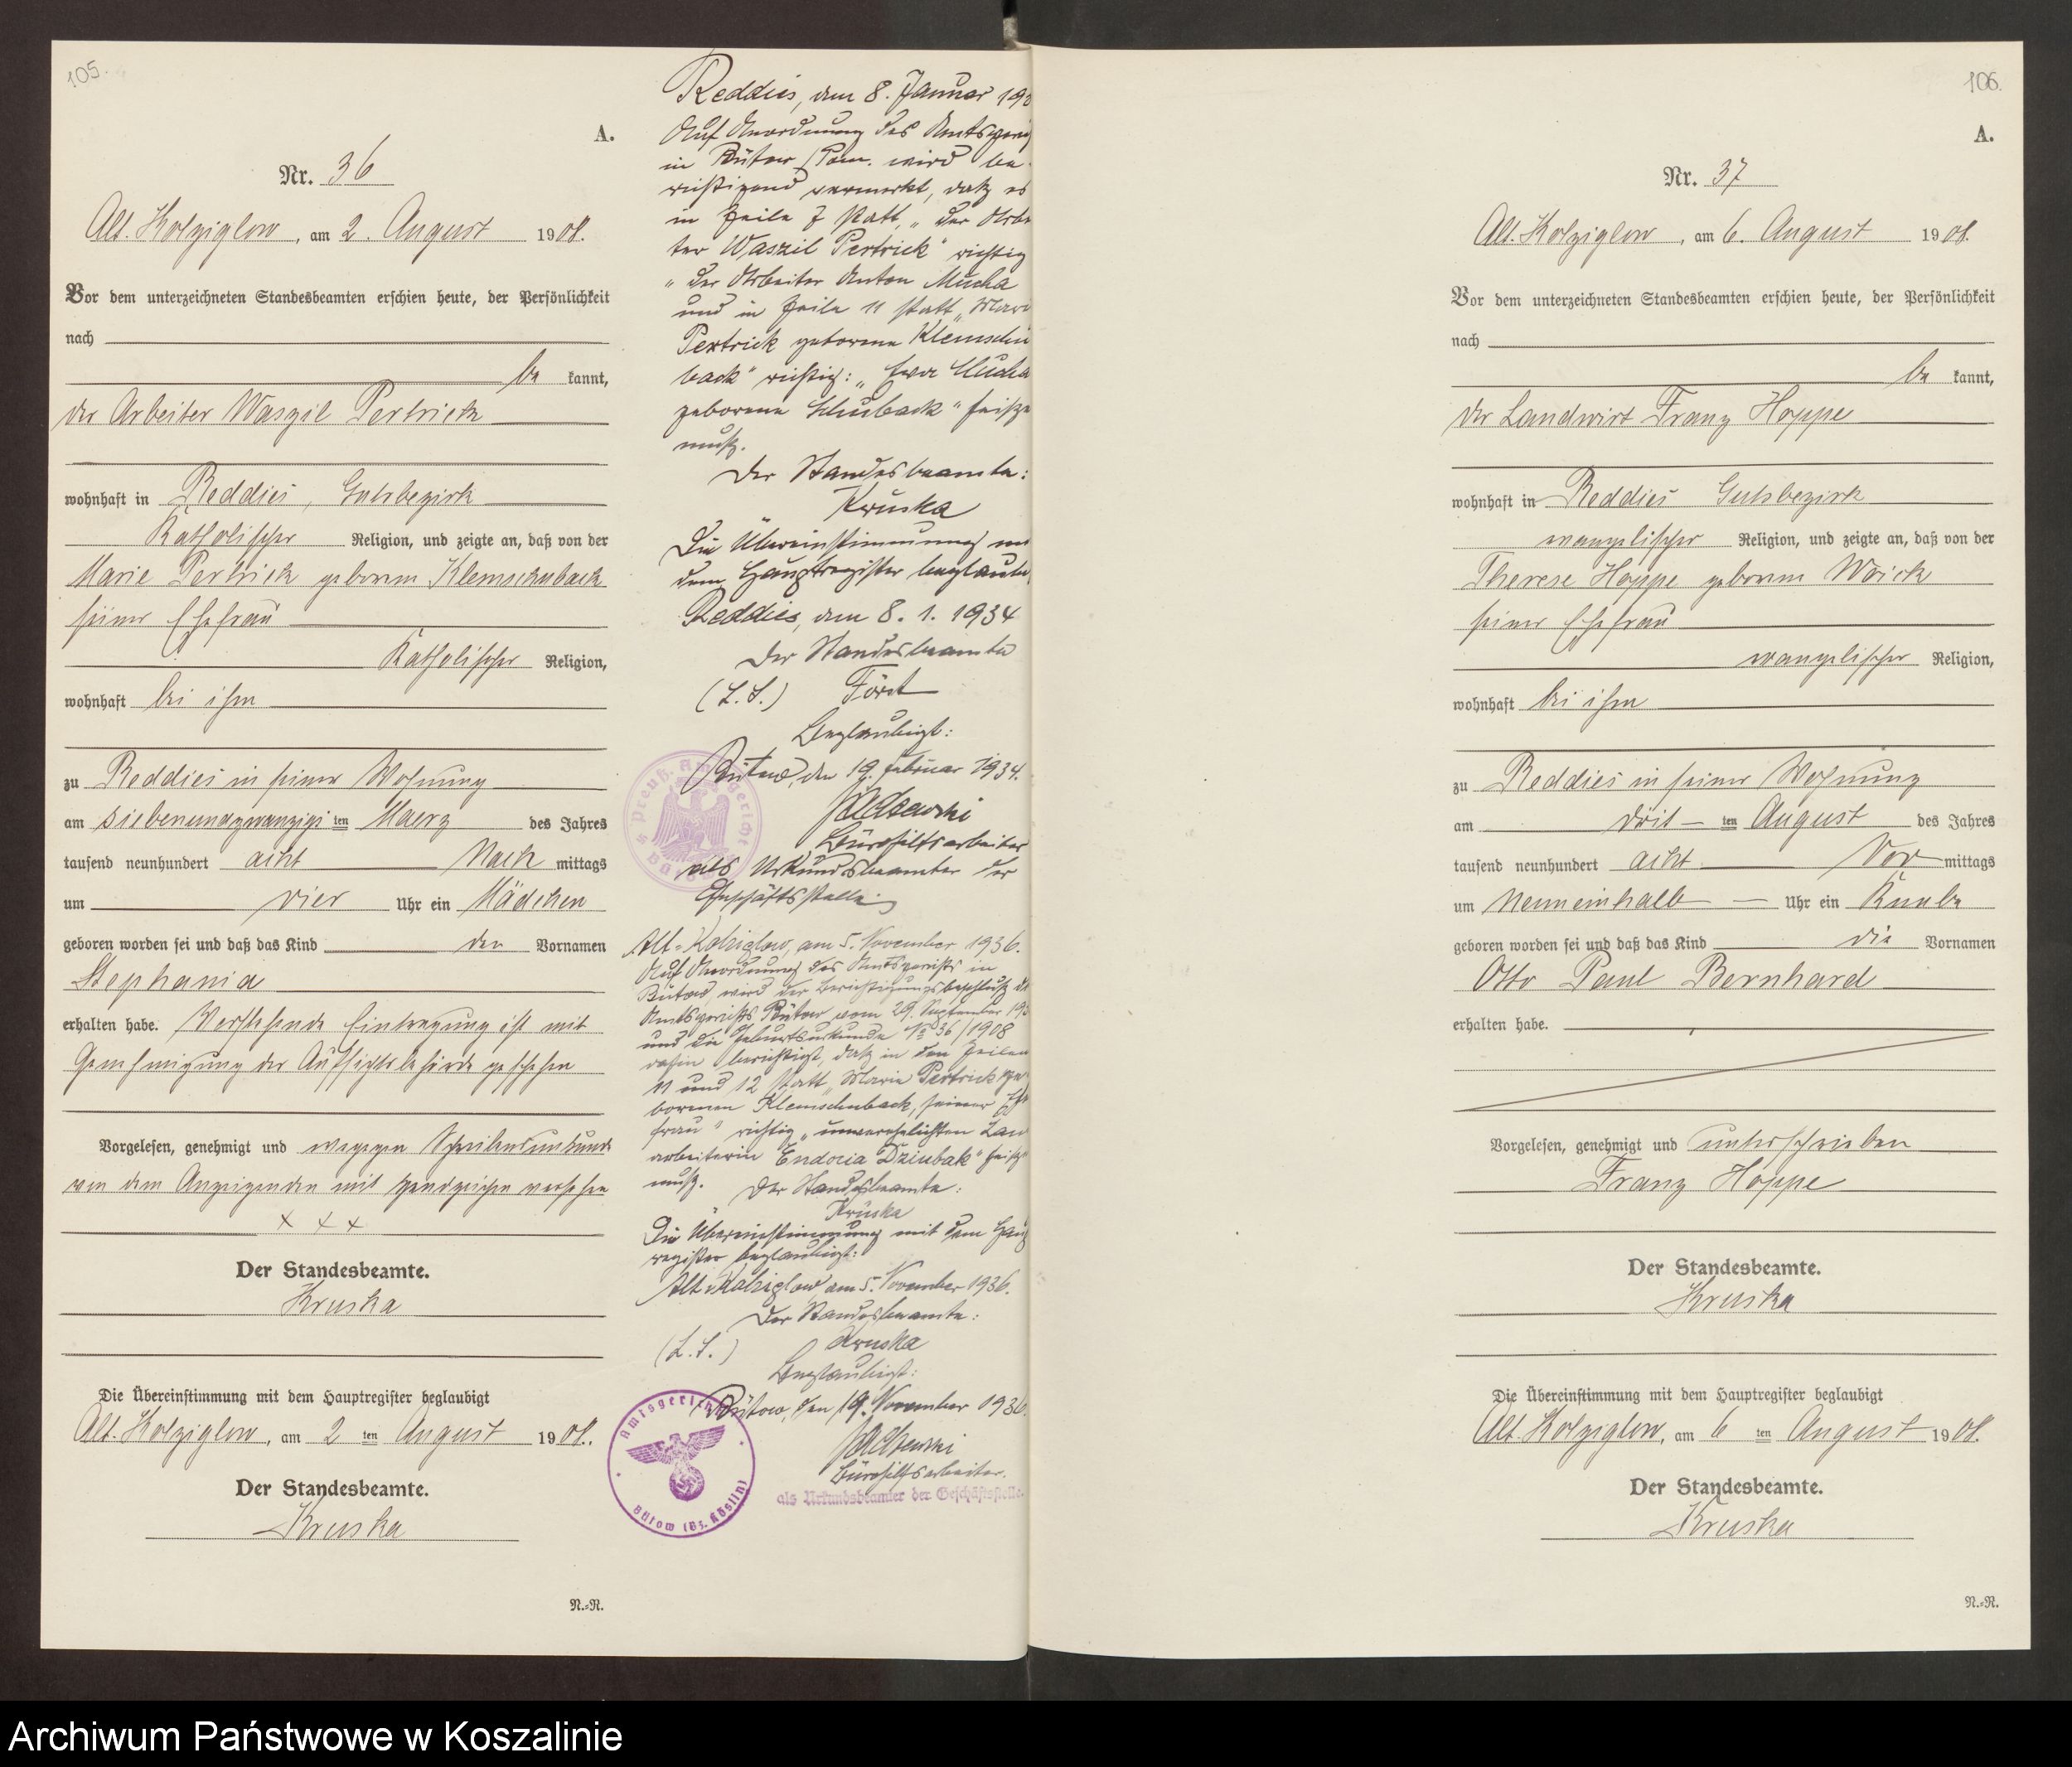 105.
A.
Nr. 36
Alt. Kolziglow, am 2. August 1908.
Vor dem unterzeichneten Standesbeamten erschien heute, der Persönlichkeit
nach
be kannt,
der Arbeiter Waszil Pertrick
wohnhaft in Reddies, Gutsbezirk
Katholischer Religion, und zeigte an, daß von der
Marie Pertrick geborenen Klemschuback
seiner Ehefrau
Katholischer Religion,
wohnhaft bei ihm
zu Reddies in seiner Wohnung
am siebenundzwanzigsten Maerz des Jahres
tausend neunhundert acht Nach mittags
um vier Uhr ein Mädchen
geboren worden sei und daß das Kind den Vornamen
Stephania
erhalten habe. Vorstehende Eintragung ist mit
Genehmigung der Aufsichtsbehörde geschehen
Vorgelesen, genehmigt und wegen Schreibensunkunde
von dem Anzeigenden mit Handzeichen versehen
+ + +
Der Standesbeamte.
Kruska
Die Übereinstimmung mit dem Hauptregister beglaubigt
Alt. Kolziglow, am 2 ten August 1908.
Der Standesbeamte.
Kruska
N.=N.
Reddies, den 8. Januar 193
Auf Anordnung des Amtsgeri
in Bütow / Pom. wird be
richtigend vermerkt, daß es
in Zeile 7 statt, „ der Arbe
ter Waszil Pertrick" richtig
„ der Arbeiter Anton Mucha
und in Zeile 11 statt „ Mari
Pertrick geborene Klemschu
back" richtig: „ Mucha
geborene " heißen
muß.
Der Standesbeamte:
Kruska
Die Übereinstimmung mit
dem Hauptregister beglaubi
Reddies, den 8. 1. 1934
Der Standesbeamte
(L.S.) Först
Beglaubigt:
Bütow, den 19. Februar 1934.
Bürohilfsarbeiter
als Urkundsbeamter der
Geschäftsstelle
Alt-Kolziglow, am 5. November 1936.
Auf Anordnung des Amtsgerichts in
Bütow, wird der Berichtigungsbeschluß d
Amtsgerichts Bütow vom 29. September 193
und die Geburtsurkunde No 36/1908
dahin berichtigt, daß in den Zeilen
11 und 12 statt „ Marie Pertrick ge
borenen Klemschuback, seiner Ehe
frau " richtig „ unverehelichten Lan
arbeiterin Endoria Dziubak" heiß
muß. Der Standesbeamte:
Kruska
Die Übereinstimmung mit dem Haup
register beglaubigt:
Alt-Kolziglow am 5. November 1936.
Der Standesbeamte:
(L.S.) Kruska
Beglaubigt:
Bütow, den 19. November 1936.
Bürohilfsarbeiter.
als Urkundsbeamter der Geschäftsstelle.
Amtsgericht
Bütow (Bz. Köslin)
106.
A.
Nr. 37
Alt. Kolziglow, am 6. August 1908.
Vor dem unterzeichneten Standesbeamten erschien heute, der Persönlichkeit
nach
be kannt,
der Landwirt Franz Hoppe
wohnhaft in Reddies Gutsbezirk
evangelischer Religion, und zeigte an, daß von der
Therese Hoppe geborenen Woick
seiner Ehefrau
evangelischer Religion,
wohnhaft bei ihm
zu Reddies in seiner Wohnung
am drit ten August des Jahres
tausend neunhundert acht Vor mittags
um neuneinhalb Uhr ein Knabe
geboren worden sei und daß das Kind die Vornamen
Otto Paul Bernhard
erhalten habe.
Vorgelesen, genehmigt und unterschrieben
Franz Hoppe
Der Standesbeamte.
Kruska
Die Übereinstimmung mit dem Hauptregister beglaubigt
Alt. Kolziglow, am 6 ten August 1908.
Der Standesbeamte.
Kruska
N.=N.
Archiwum Państwowe w Koszalinie